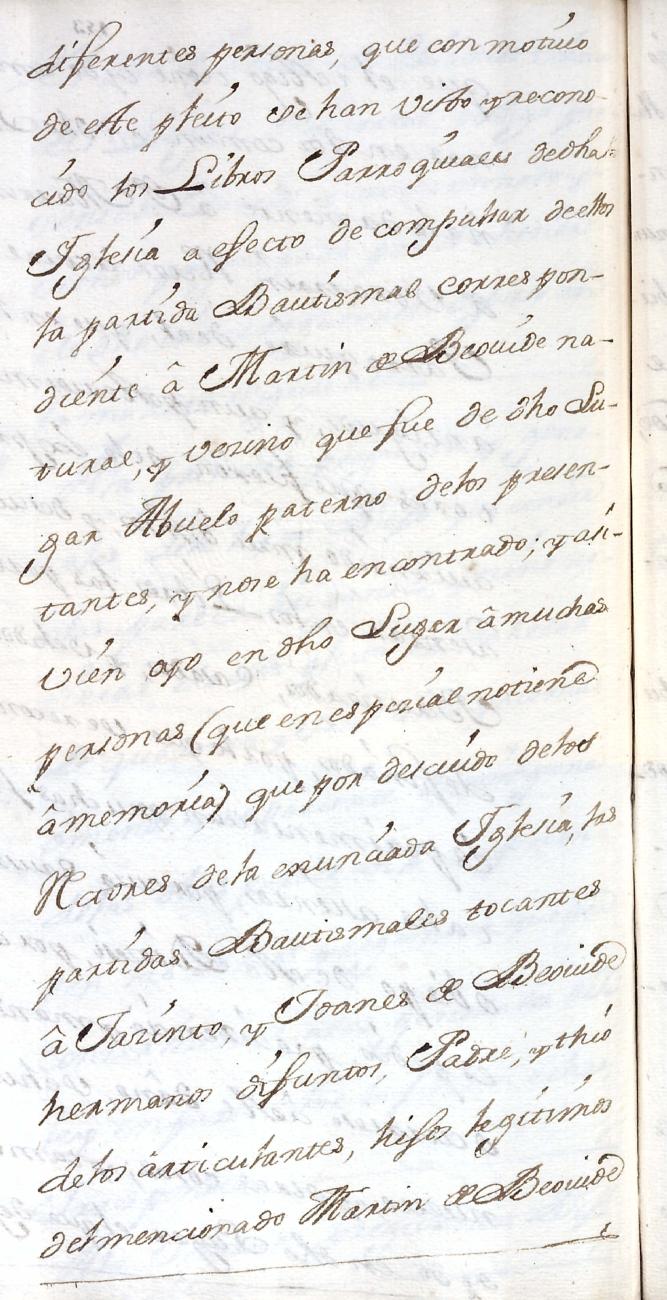 diferentes personas, que con motivo
de este pleito se han visto y recono-
cido los Libros Parroquiales de dha
Iglesia a efecto de compulsar de ellos
la partida Bautismal correspon-
diente â Martin de Beovide na-
tural, y vecino que fue de dho Lu-
gar Abuelo paterno de los presen-
tantes, y nose ha encontrado; y asi-
vien oyo en dho Lugar â muchas
personas (que en especial no tiene
â memoria) que por descuido de los
Rctores de la enunciada Iglesia, las
partidas Bautismales tocantes
â Jacinto, y Joanes de Beovide
hermanos difuntos, Padre, y thio
de los articulantes, hijos legitimos
del mencionado Martin de Beovide